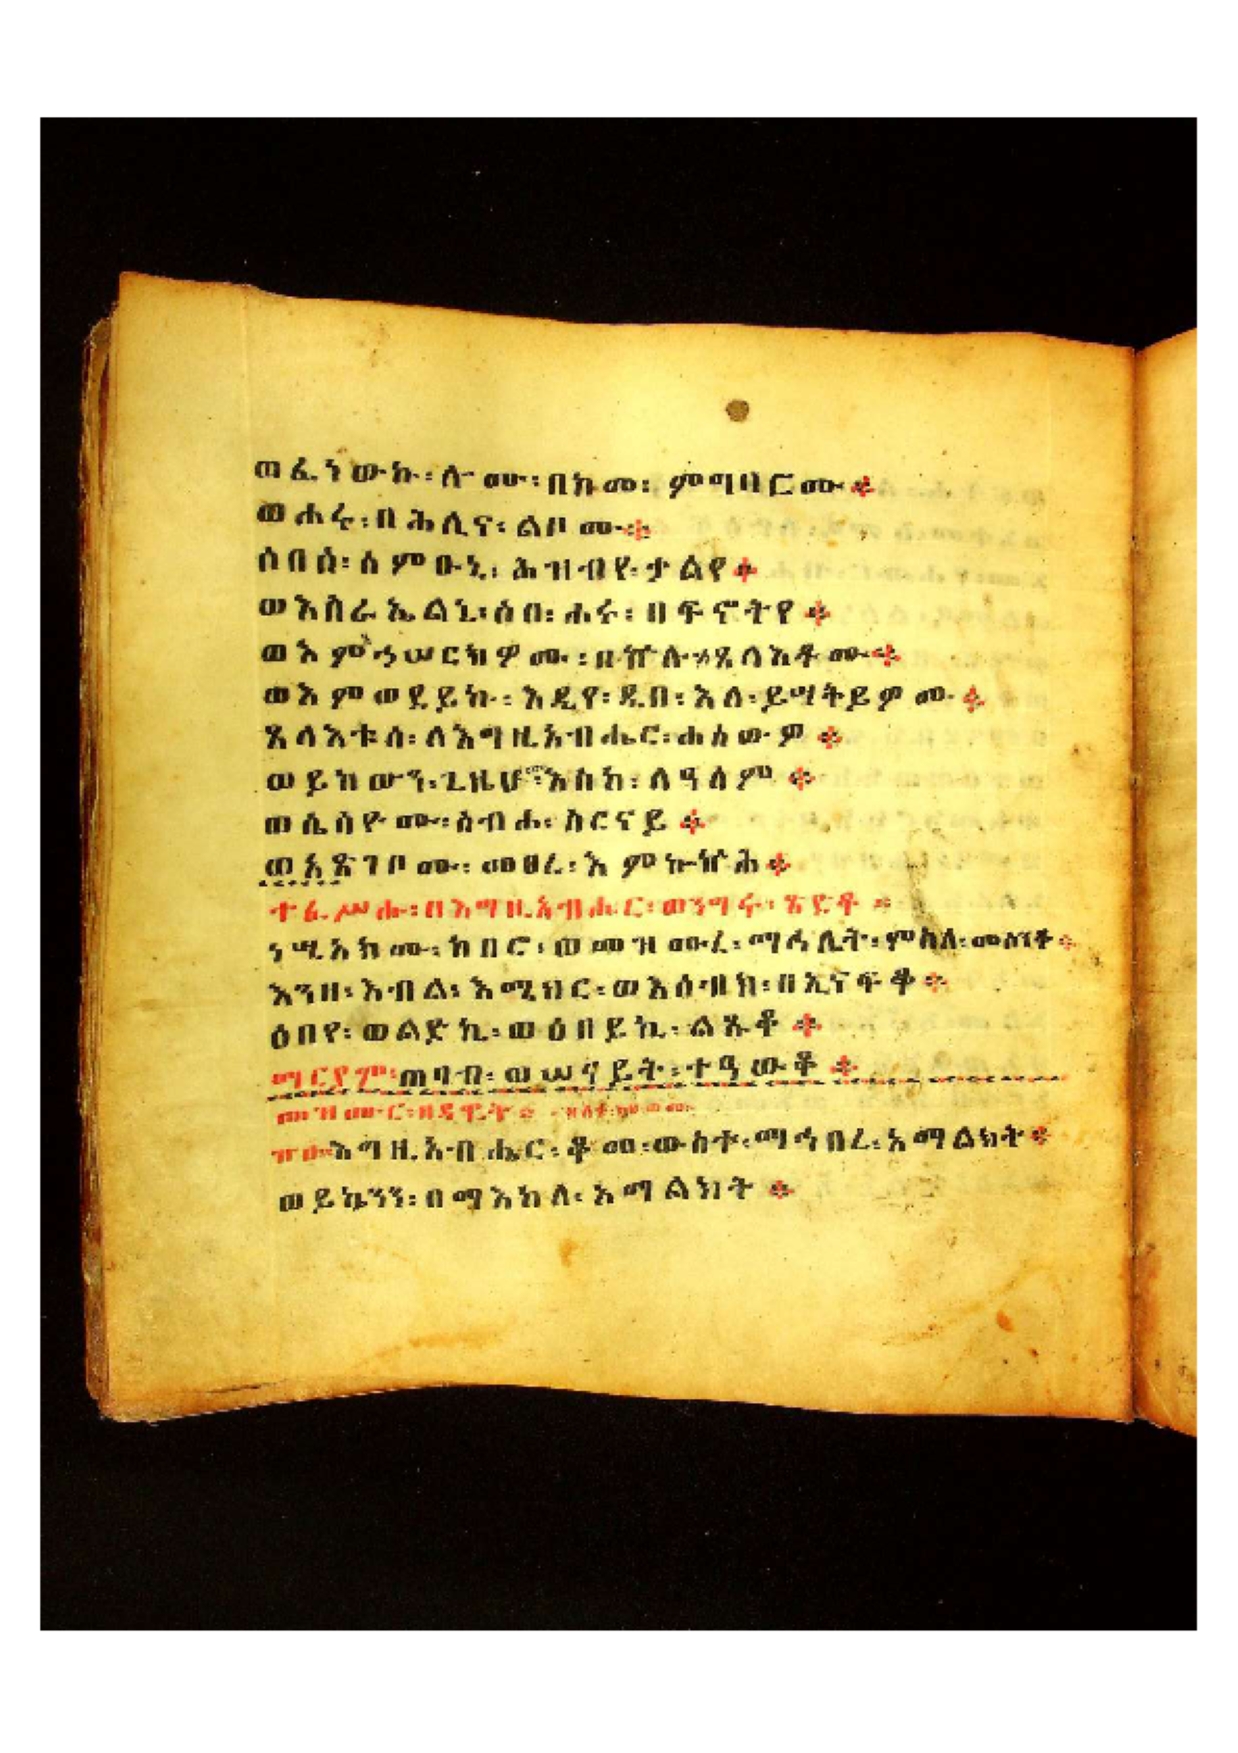 ወፈነውኩ፡ ሎሙ፡ በከመ፡ ምግባሮሙ፨
ወሐሩ፡ በሕሊና፡ ልቦሙ፨
ሰበሰ፡ ሰምዑኒ፡ ሕዝብየ፡ ታልየ፨
ወእስራኤልኒ፡ ሶበ፡ ሐሩ፡ በፍኖትየ፨
ወእምኅሠርክዎሙ፡ በኵሉ፡ ጸላእቶሙ፨
ወእምወደይኩ፡ እዲየ፡ ዲበ፡ እለ፡ ይሣቅይዎሙ፨
ጸላእቱሰ፡ ለእግዚአብሔር፡ ሐሰውዎ፨
ወይከውን፡ ጊዜሆሙ፡ እስከ፡ ለዓለም፨
ወሴሰዮሙ፡ ስብሐ፡ ስርናይ፨
ወአጽገቦሙ፡ መዐረ፡ እምኰኵሕ፨
ተፈሥሑ፡ በእግዚአብሔር፡ ወንግሩ፡ ጽድቆ፨
ንሢአክሙ፡ ከበሮ፡ ወመዝሙረ፡ ማኅሌት፡ ምስለ፡ መሰንቆ፨
እንዘ፡ እብል፡ እሜህር፡ ወእሰብክ፡ በኢናፍቆ፨
ዕበየ፡ ወልድኪ፡ ወዕበይኪ፡ ልጹቆ፨
ማርያም፡ ጠባብ፡ ወሠናይት፡ ተዓውቆ፨
መዝሙር፡ ዘዳዊት፨
እግዚአብሔር፡ ቆመ፡ ውስተ፡ ማኅበረ፡ አማልክት፨
ወይኴንን፡ በማእከለ፡ አማልክት፨